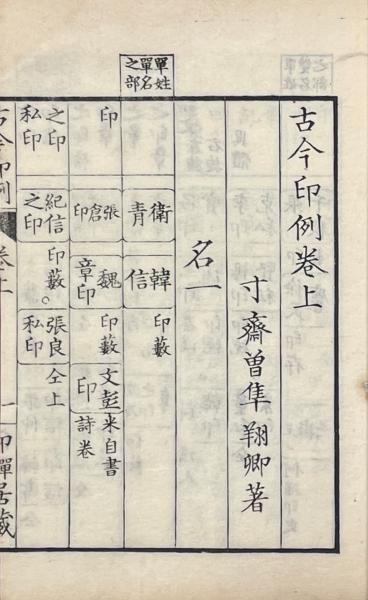 單姓
單名
之部
古今印例卷上
寸齋曽隼翔卿著
名一
衛青
韓信
印藪
印
張倉印
魏章印
印藪
文彭印
来自書詩卷
之印
私印
紀信之印
印藪。
張良私印
仝上
古今印例
卷上
一